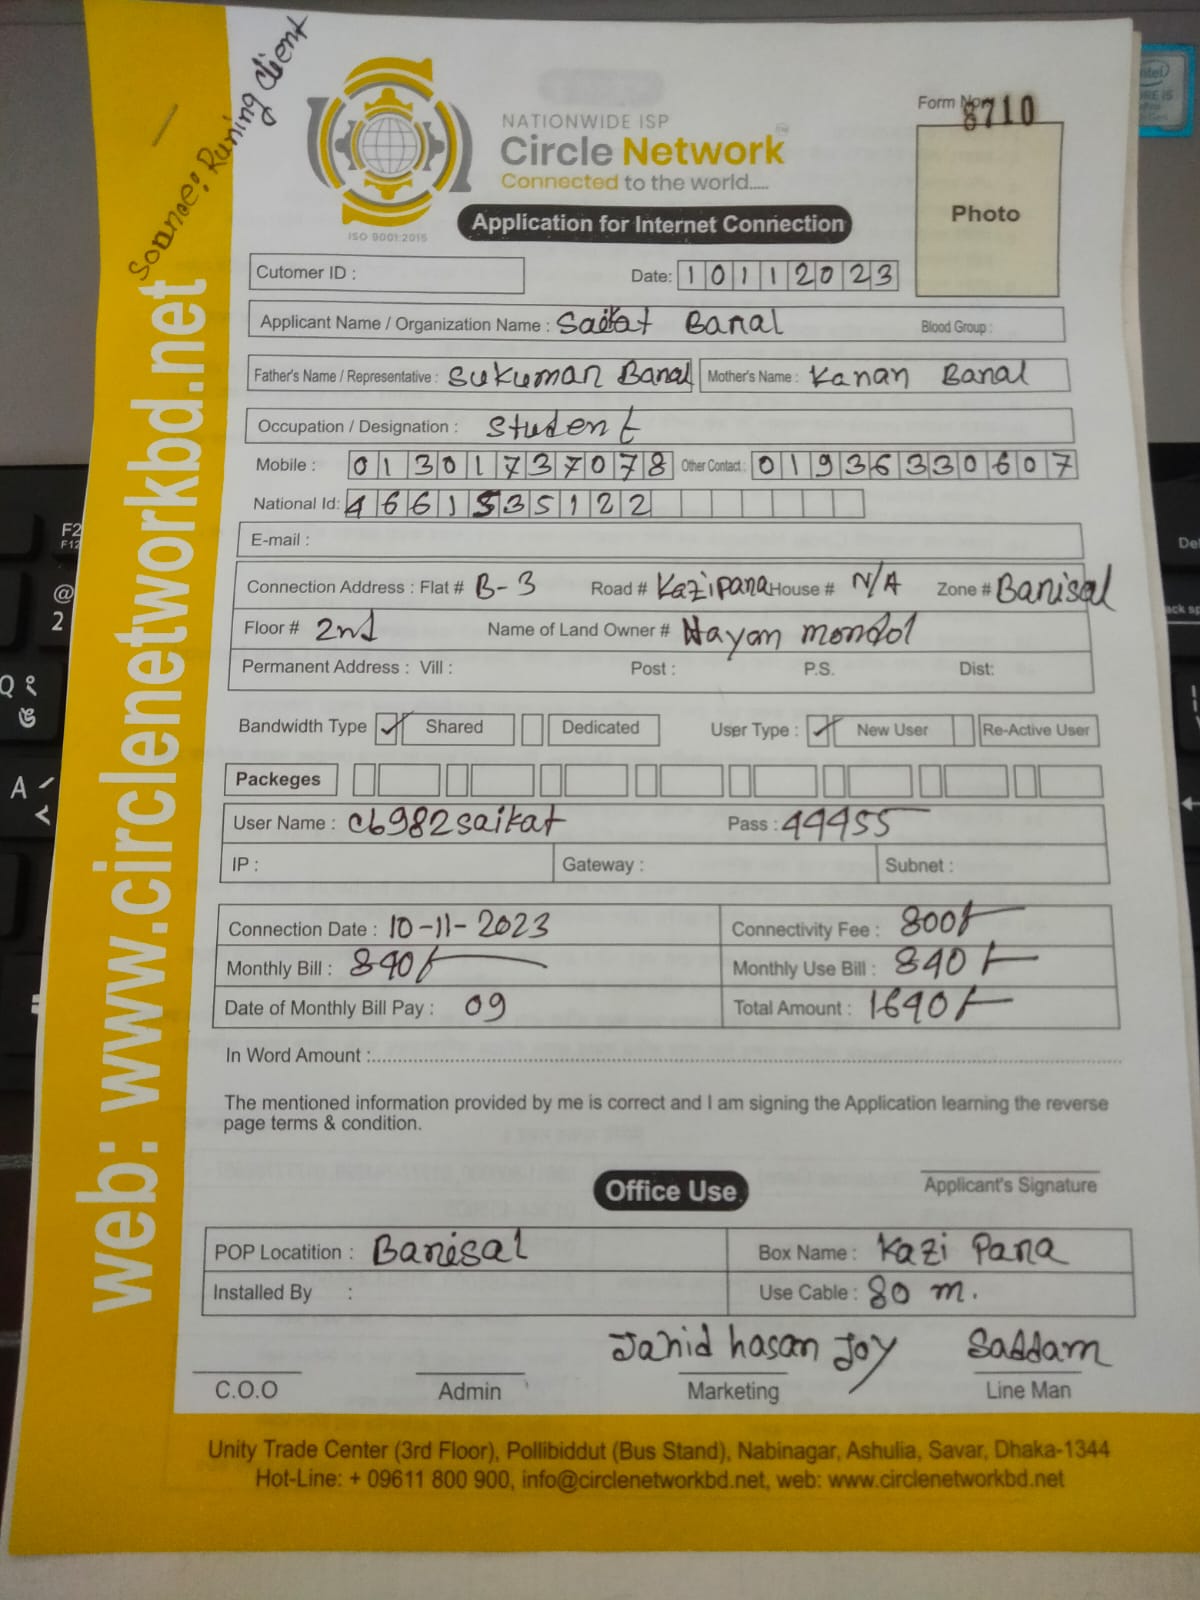 Soarce: Runing Client
NATIONWIDE ISP
Circle Network
Connected to the world.....
ISO 9001:2015
Application for Internet Connection
Form No. 8710
Photo
Cutomer ID :
Date: 10112023
Applicant Name / Organization Name : Saikat Baral Blood Group :
Father's Name / Representative : Sukumar Baral Mother's Name : Kanan Baral
Occupation / Designation : Student
Mobile : 01301737078 Other Contact : 01936330607
National Id: 4661535122
E-mail :
Connection Address : Flat # B-3 Road # Kazipara House # N/A Zone # Barisal
Floor # 2nd Name of Land Owner # Nayan mondol
Permanent Address : Vill : Post : P.S. Dist:
Bandwidth Type ✓ Shared Dedicated User Type : ✓ New User Re-Active User
Packeges
User Name : cb982saikat Pass : 44455
IP : Gateway : Subnet :
Connection Date : 10-11-2023 Connectivity Fee : 800/-
Monthly Bill : 840/- Monthly Use Bill : 840/-
Date of Monthly Bill Pay : 09 Total Amount : 1640/-
In Word Amount :
The mentioned information provided by me is correct and I am signing the Application learning the reverse
page terms & condition.
Applicant's Signature
Office Use
POP Locatition : Barisal Box Name : Kazi Para
Installed By : Use Cable : 80 m.
Jahid hasan Joy Saddam
C.O.O Admin Marketing Line Man
Unity Trade Center (3rd Floor), Pollibiddut (Bus Stand), Nabinagar, Ashulia, Savar, Dhaka-1344
Hot-Line: + 09611 800 900, info@circlenetworkbd.net, web: www.circlenetworkbd.net
web: www.circlenetworkbd.net